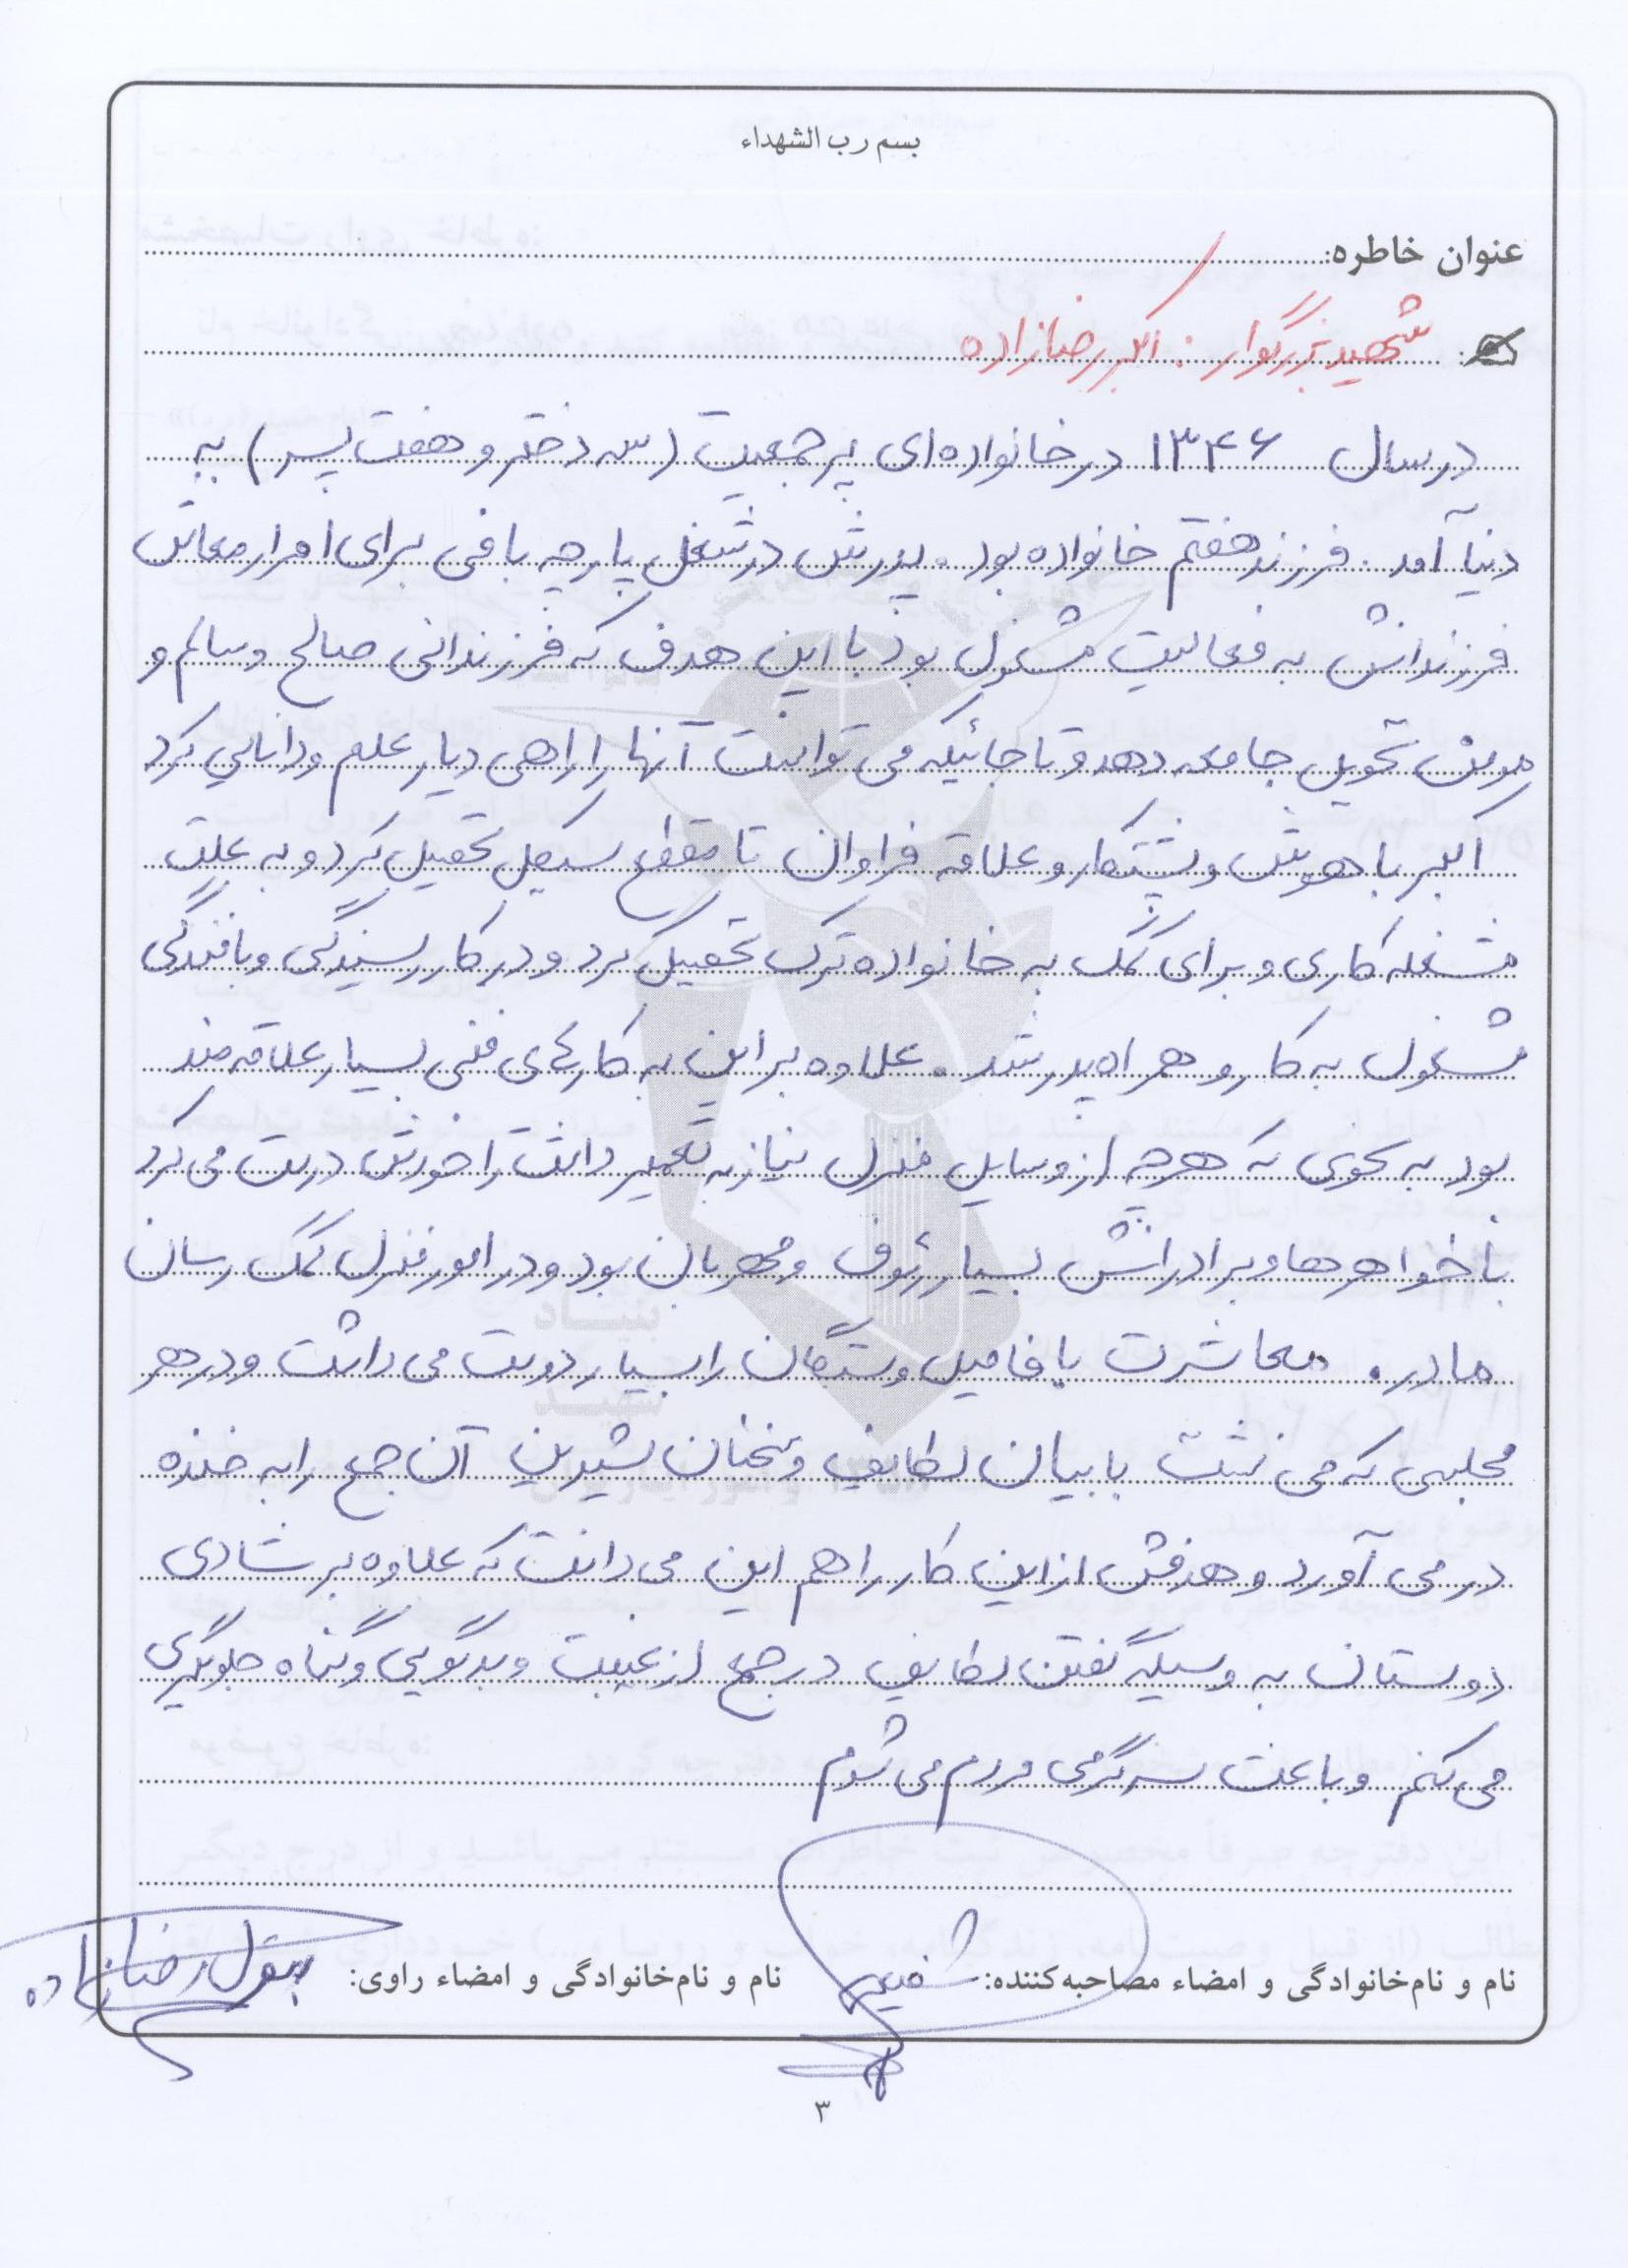 بسم رب الشهداء
عنوان خاطره:
شهید بزرگوار : اکبر رضازاده
در سال ۱۳۴۶ در خانواده‌ای پر جمعیت (سه دختر و هفت پسر) به
دنیا آمد . فرزند هفتم خانواده بود . پدرش در شغل پارچه بافی برای امرار معاش
فرزندانش به فعالیت مشغول بود با این هدف که فرزندانی صالح و سالم و
مومن تحویل جامعه دهد و تا جائیکه می توانست آنها را راهی دیار علم و دانایی کرد
اکبر با هوش و پشتکار و علاقه فراوان تا مقطع سیکل تحصیل کرد و به علت
مشغله کاری و برای کمک به خانواده ترک تحصیل کرد و در کار ریسندگی و بافندگی
مشغول به کار و همراه پدر شد . علاوه بر این به کارهای فنی بسیار علاقه مند
بود به نحوی که هر چه از وسایل منزل نیاز به تعمیر داشت را خودش درست می کرد
با خواهرها و برادرانش بسیار رئوف و مهربان بود و در امور منزل کمک رسان
مادر . معاشرت با فامیل و بستگان را بسیار دوست می داشت و در هر
مجلسی که می نشست با بیان لطایف و سخنان شیرین آن جمع را به خنده
در می آورد و هدفش از این کار را هم این می دانست که علاوه بر شادی
دوستان به وسیله گفتن لطایف در جمع از غیبت و بدگویی و گناه جلوگیری
می کنم و باعث سرگرمی مردم می شوم
نام و نام‌خانوادگی و امضاء مصاحبه‌کننده: شفیعی نام و نام‌خانوادگی و امضاء راوی: بتول رضازاده
۳